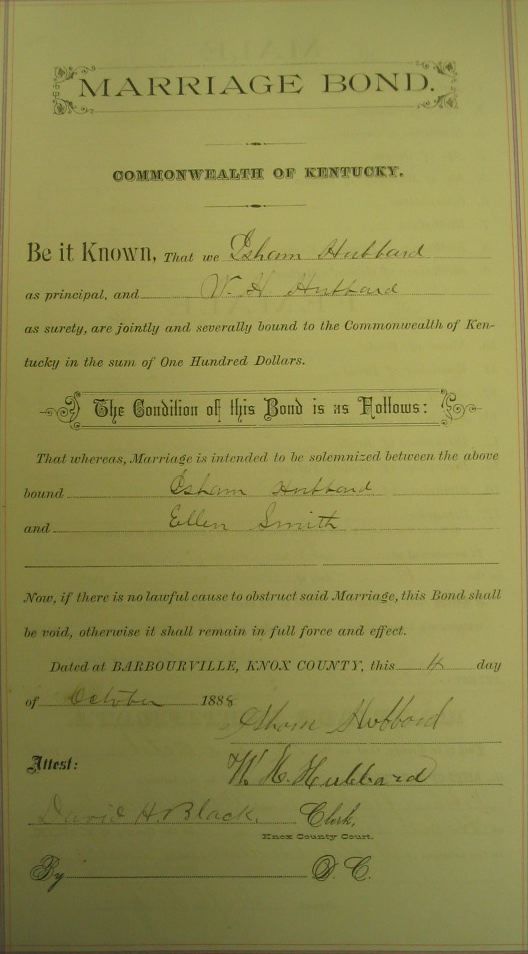 MARRIAGE BOND.
COMMONWEALTH OF KENTUCKY.
Be it Known, That we Isham Hubbard
as principal, and W. H Hubbard
as surety, are jointly and severally bound to the Commonwealth of Ken-
tucky in the sum of One Hundred Dollars.
The Condition of this Bond is as Follows:
That whereas, Marriage is intended to be solemnized between the above
bound Isham Hubbard
and Ellen Smith
Now, if there is no lawful cause to obstruct said Marriage, this Bond shall
be void, otherwise it shall remain in full force and effect.
Dated at BARBOURVILLE, KNOX COUNTY, this 4 day
of October 1888
Isham Hubbard
Attest:
W. H. Hubbard
David H. Black, Clerk,
Knox County Court.
By D. C.